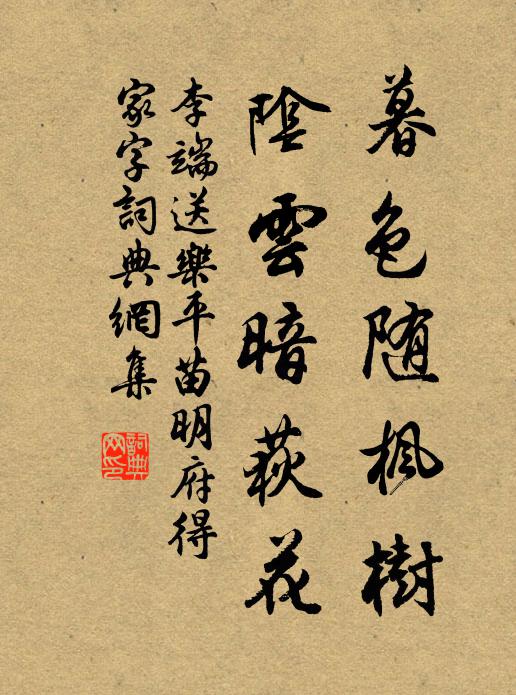 暮色随楓樹
陰雲暗荻花
李端送樂平苗明府得
家字詞典網集
詞典網印